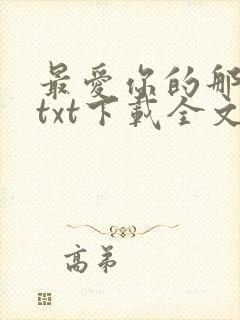 最爱你的那
txt下載全文
高弟